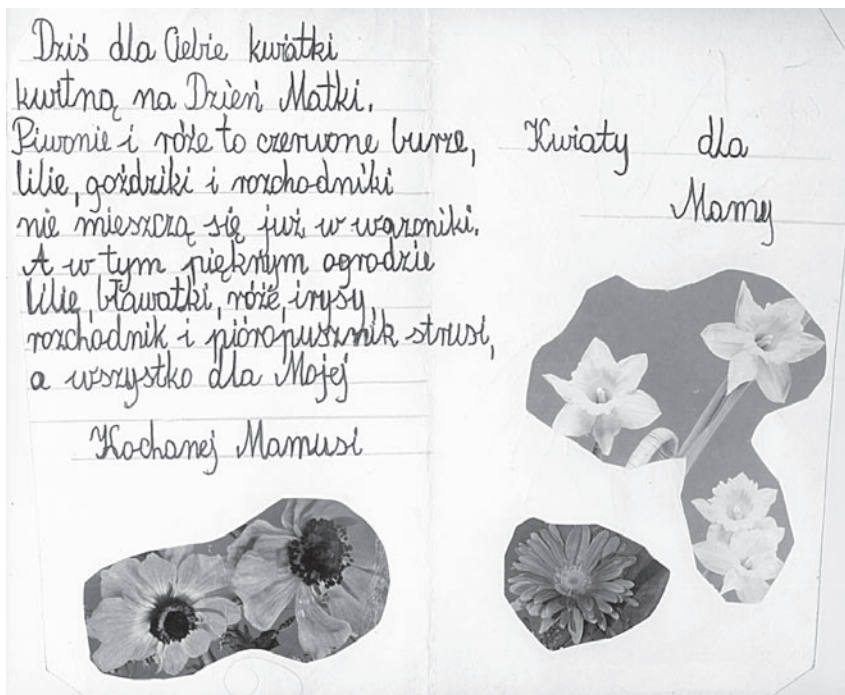 Dziś dla Ciebie kwiatki
kwitną na Dzień Matki.
Piwonie i róże to czerwone burze,
lilie, goździki i rozchodniki
nie mieszczą się już w wazoniki.
A w tym pięknym ogrodzie
lilie, bławatki, róże, irysy,
rozchodnik i pióropusznik strusi,
a wszystko dla Mojej
Kochanej Mamusi
Kwiaty dla
Mamy